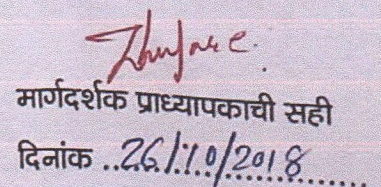 मार्गदर्शक प्राध्यापकाची सही
दिनांक ..26/10/2018..........